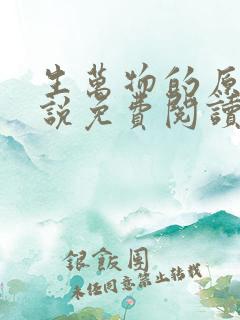 生萬物的原
說免費閱讀
銀飯團
未經同意禁止轉載